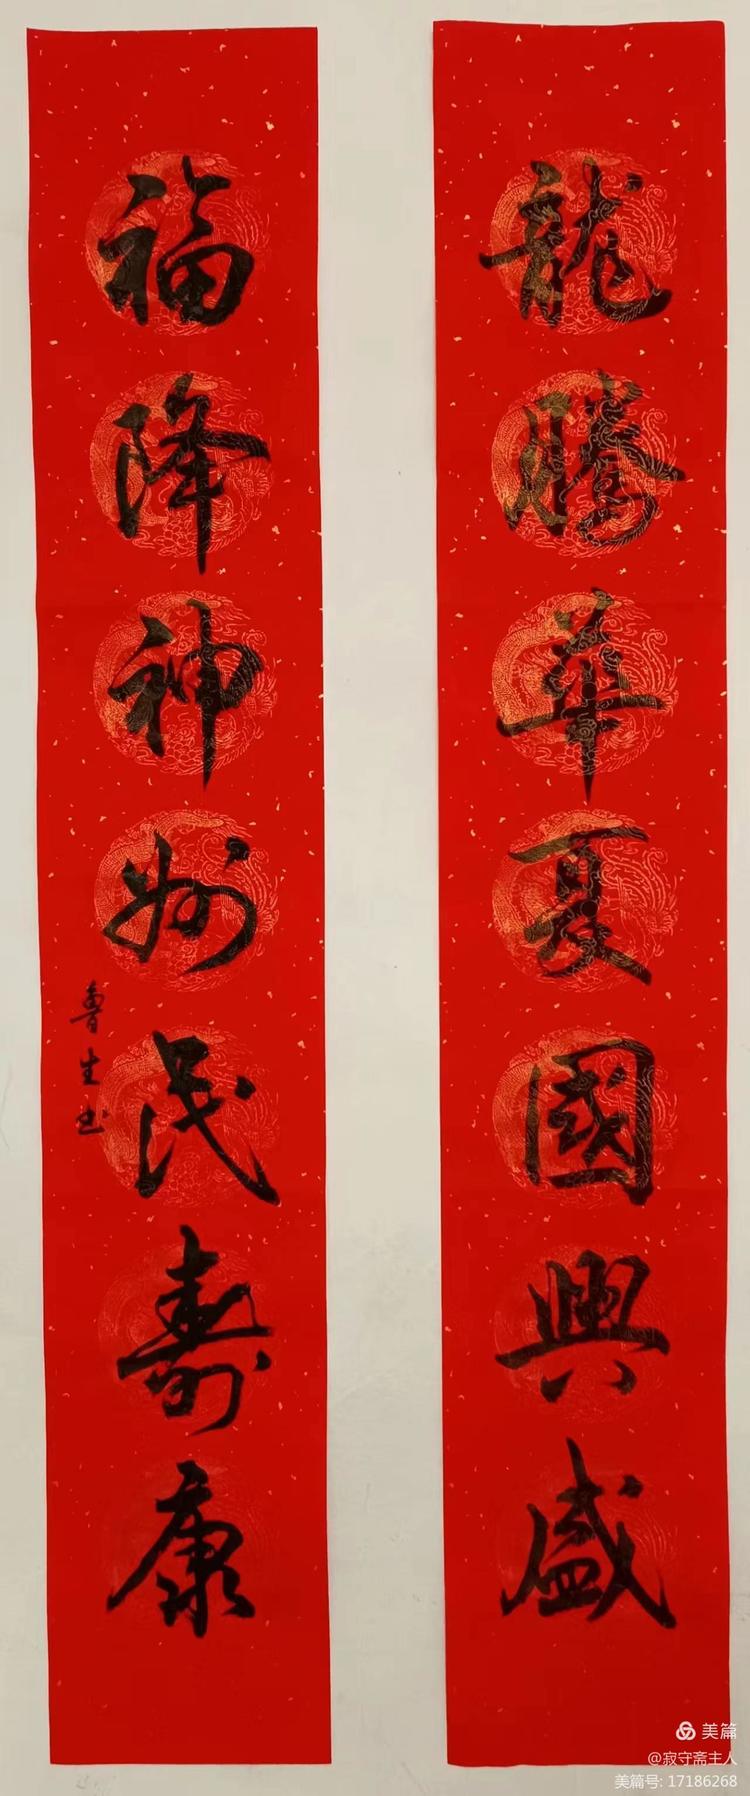 龍騰華夏國興盛
福降神州民壽康
魯生书
美篇
@寂守斋主人
美篇号: 17186268